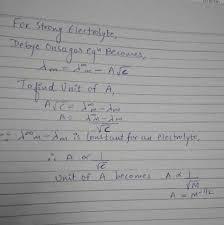 For Strong Electrolyte,
Debye Onsager Eqⁿ Becomes,
λm = λ∞m - A√C
To find Unit of A,
A√C = λ∞m - λm
A = λ∞m - λm / √C
∵ λ∞m - λm is Constant for an Electrolyte,
∴ A ∝ 1/√C
Unit of A becomes A ∝ 1/√M
A = M^-1/2